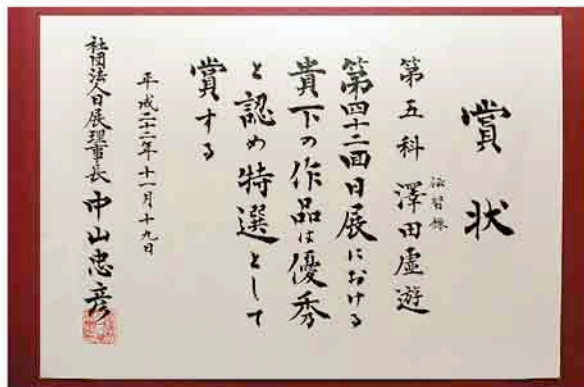 賞状
伝習録
第五科 澤田虚遊
第四十二回日展における
貴下の作品は優秀
と認め特選として
賞する
平成二十二年十一月十九日
社団法人日展理事長 中山忠彦